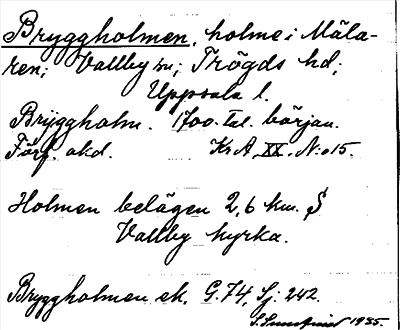 Bryggholmen, holme i Mäla-
ren; Vallby sn; Trögds hd;
Uppsala l.
Bryggholm. 1700-tal. början.
Förf. okd. Kr A XX. N:o 15.
Holmen belägen 2,6 km. S
Vallby kyrka.
Bryggholmen ek. G.74, Sj. 242.
1935.